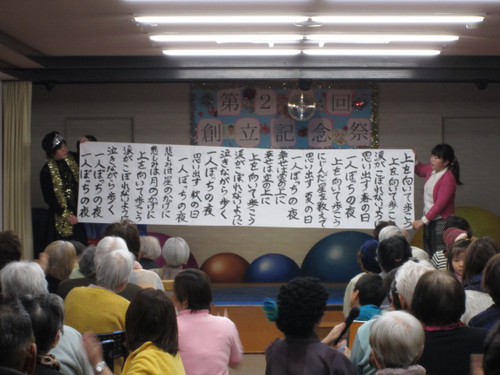 第2回
創立記念祭
上を向いて歩こう
上を向いて歩こう
涙がこぼれないように
思い出す春の日
一人ぼっちの夜
上を向いて歩こう
にじんだ星を数えて
思い出す夏の日
一人ぼっちの夜
幸せは雲の上に
幸せは空の上に
上を向いて歩こう
涙がこぼれないように
泣きながら歩く
一人ぼっちの夜
思い出す秋の日
一人ぼっちの夜
悲しみは星のかげに
悲しみは月のかげに
上を向いて歩こう
涙がこぼれないように
泣きながら歩く
一人ぼっちの夜
一人ぼっちの夜